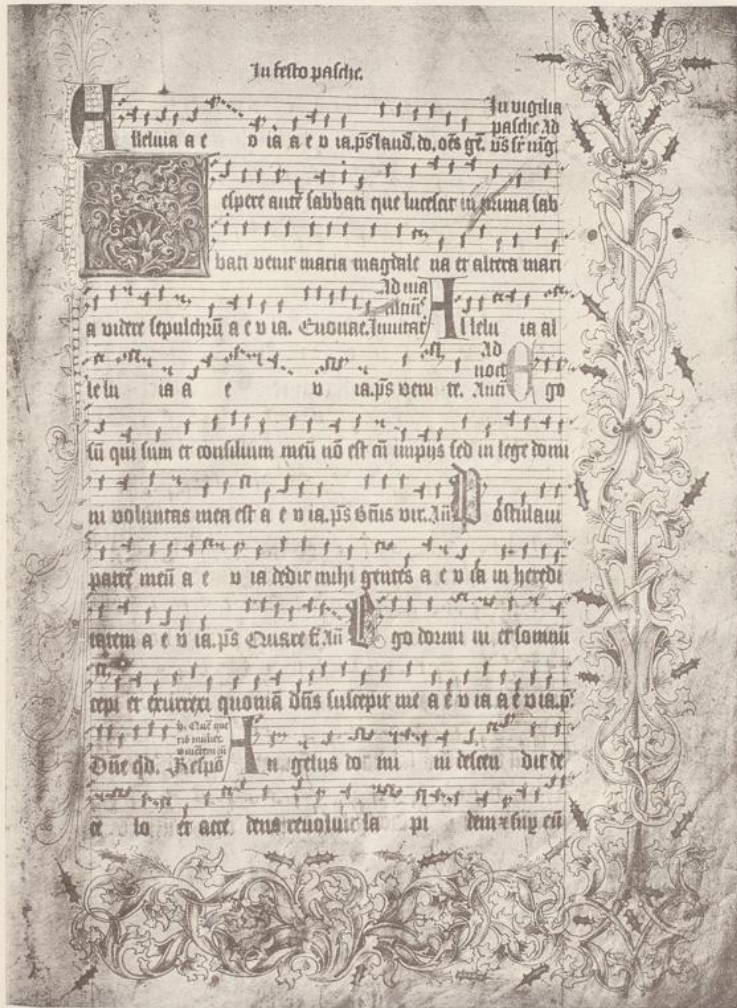 In festo pasche.
In vigilia
pasche Ad
lleluia a e v ia a e v ia. p̄s laud. do. oēs gē. v̄s
espere autē sabbati que lucescit in prima sab
bati venit maria magdale na et altera mari
Ad ma
a videre sepulchrū a e v ia. Euouae. Inuitat̄ A l lelu ia al
Ad
noct̄
le lu ia a e v ia. p̄s veni te. Antī E go
sū qui sum et consilium meū nō est cū impijs sed in lege domi
ni voluntas mea est a e v ia. p̄s Btūs vir. Añ P ostulaui
patrē meū a e v ia dedit mihi gentes a e v ia in heredi
tatem a e v ia. p̄s Quare f̄. Añ E go dormi ui et somnū
cepi et exurrexi quoniā dn̄s suscepit me a e v ia a e v ia. p̄s
Dn̄e qd. Respō A n gelus do mi ni descen dit de
ce lo et acce dens reuoluit la pi dem et sup eū